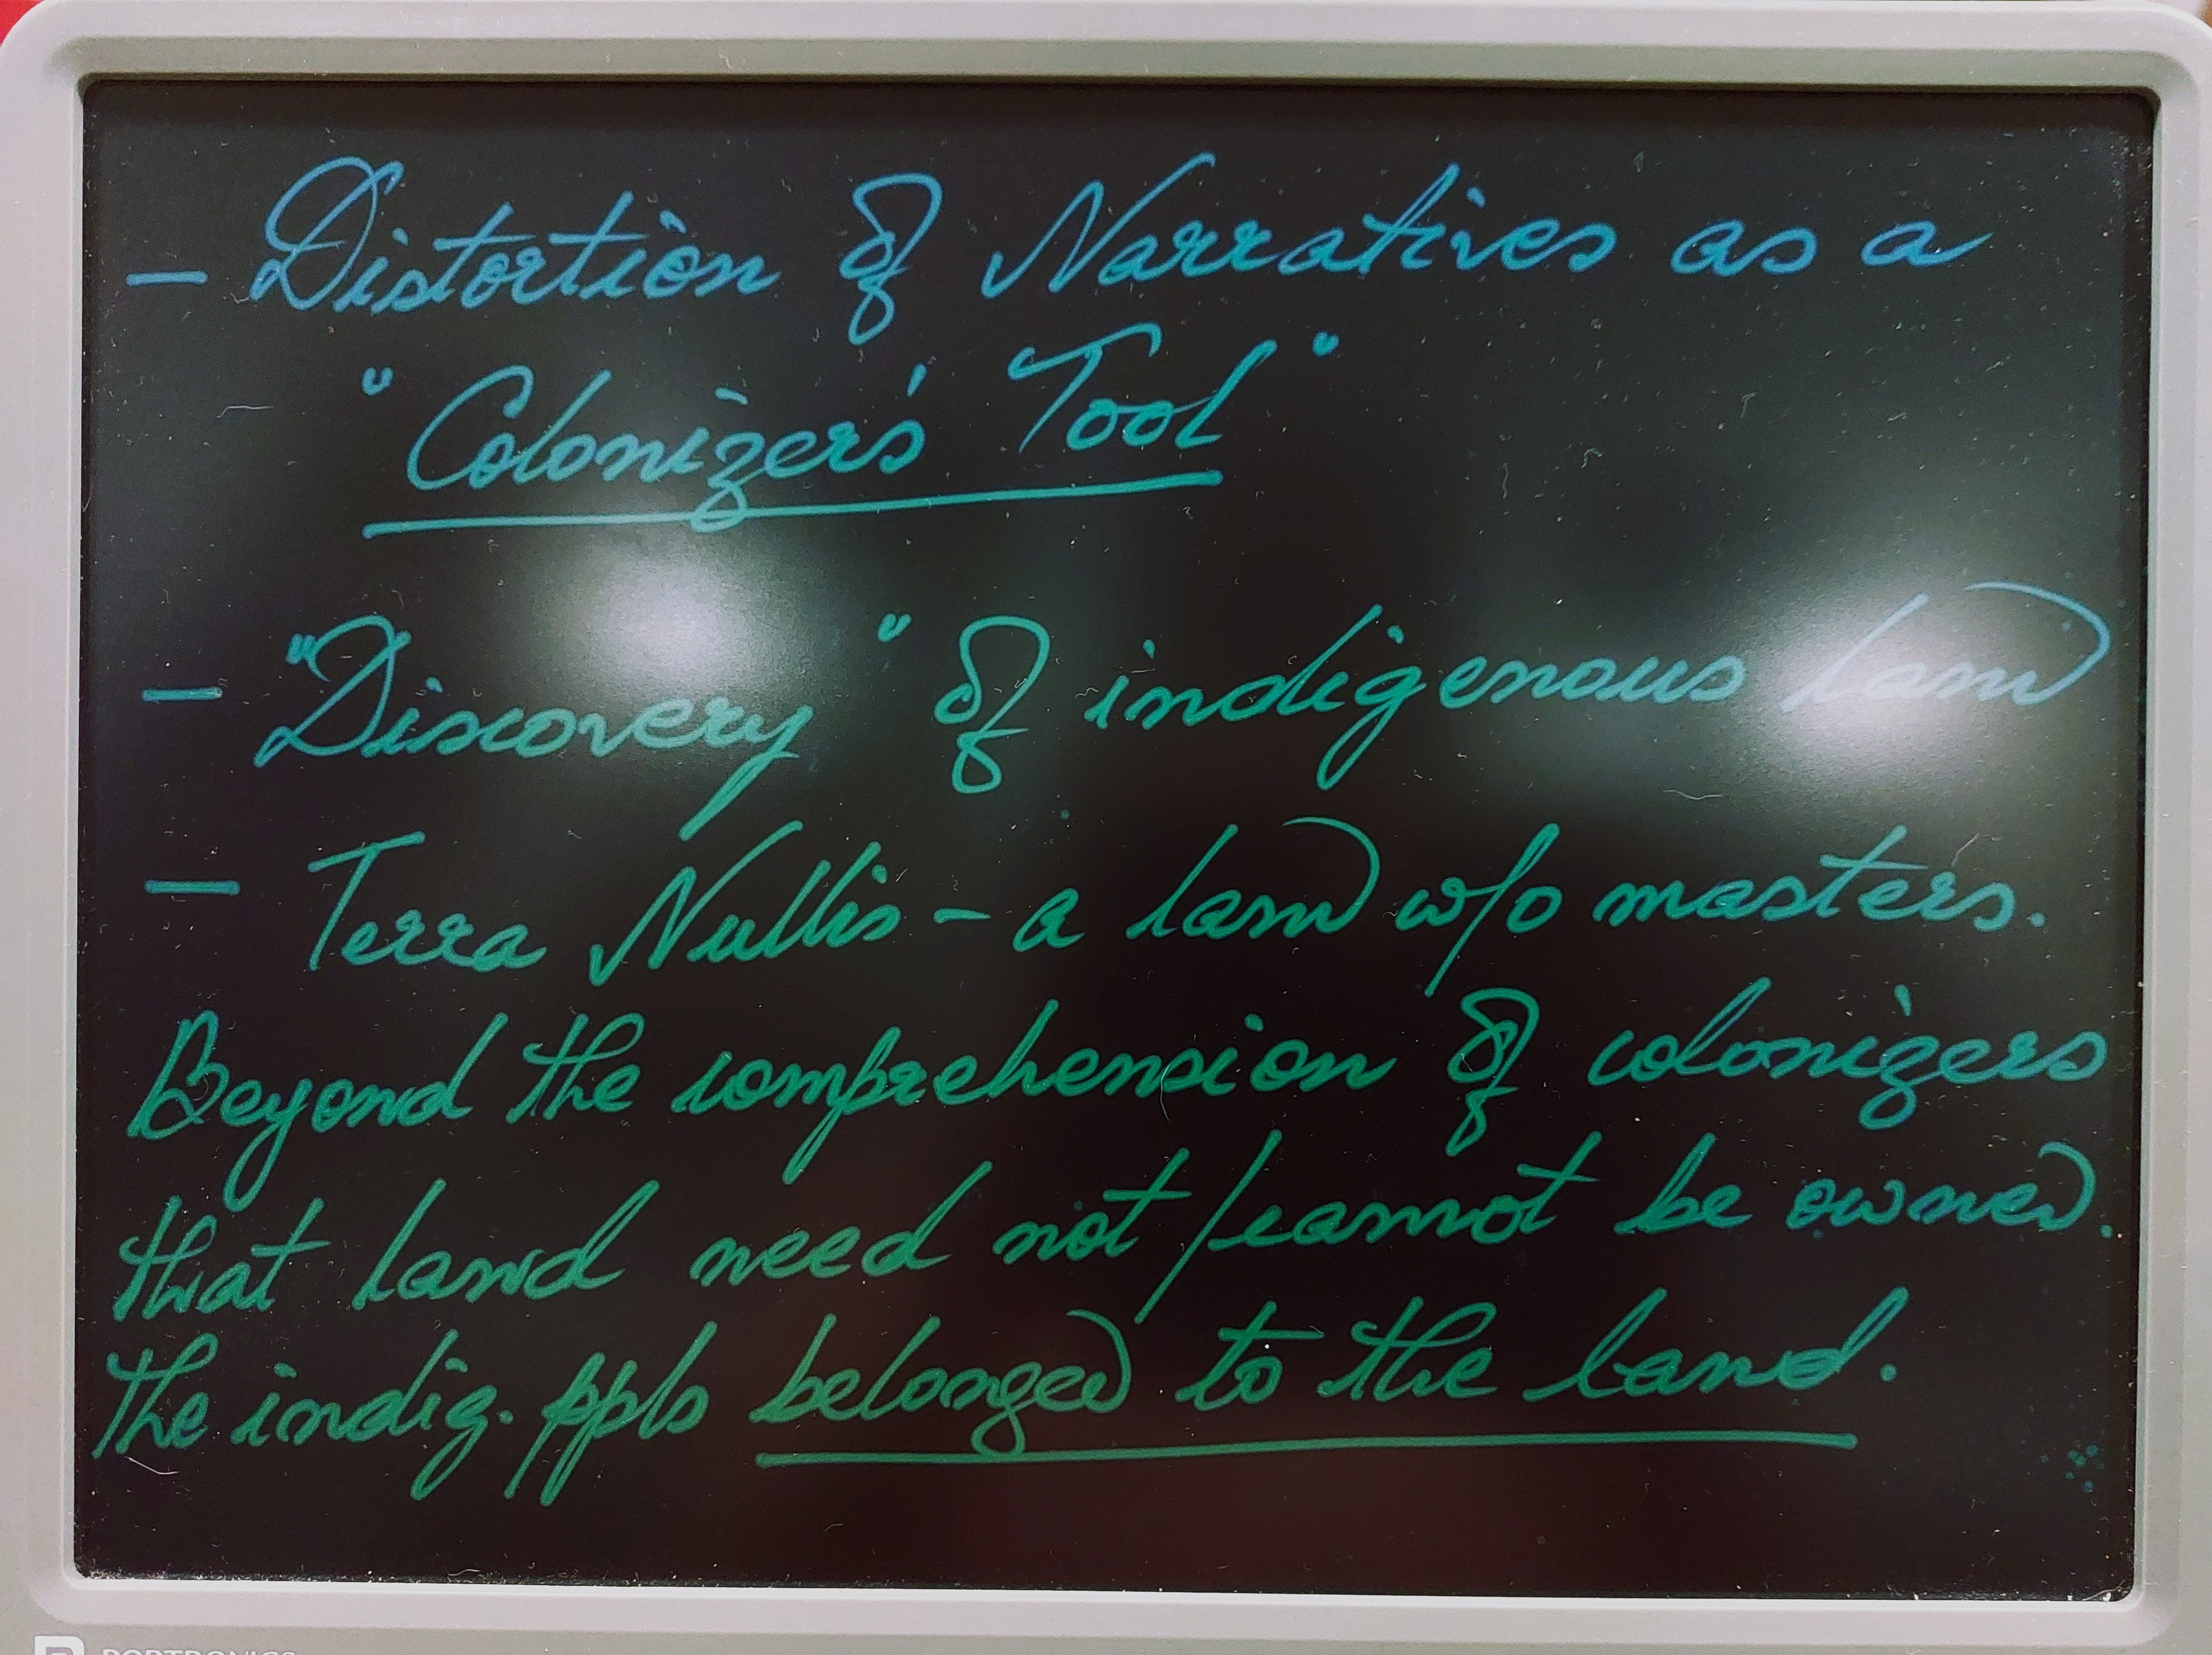 - Distortion of Narratives as a
"Colonizer's Tool"
- "Discovery" of indigenous land
- Terra Nullis - a land w/o masters.
Beyond the comprehension of colonizers
that land need not/cannot be owned.
The indig. ppls belonged to the land.
PORTRONICS